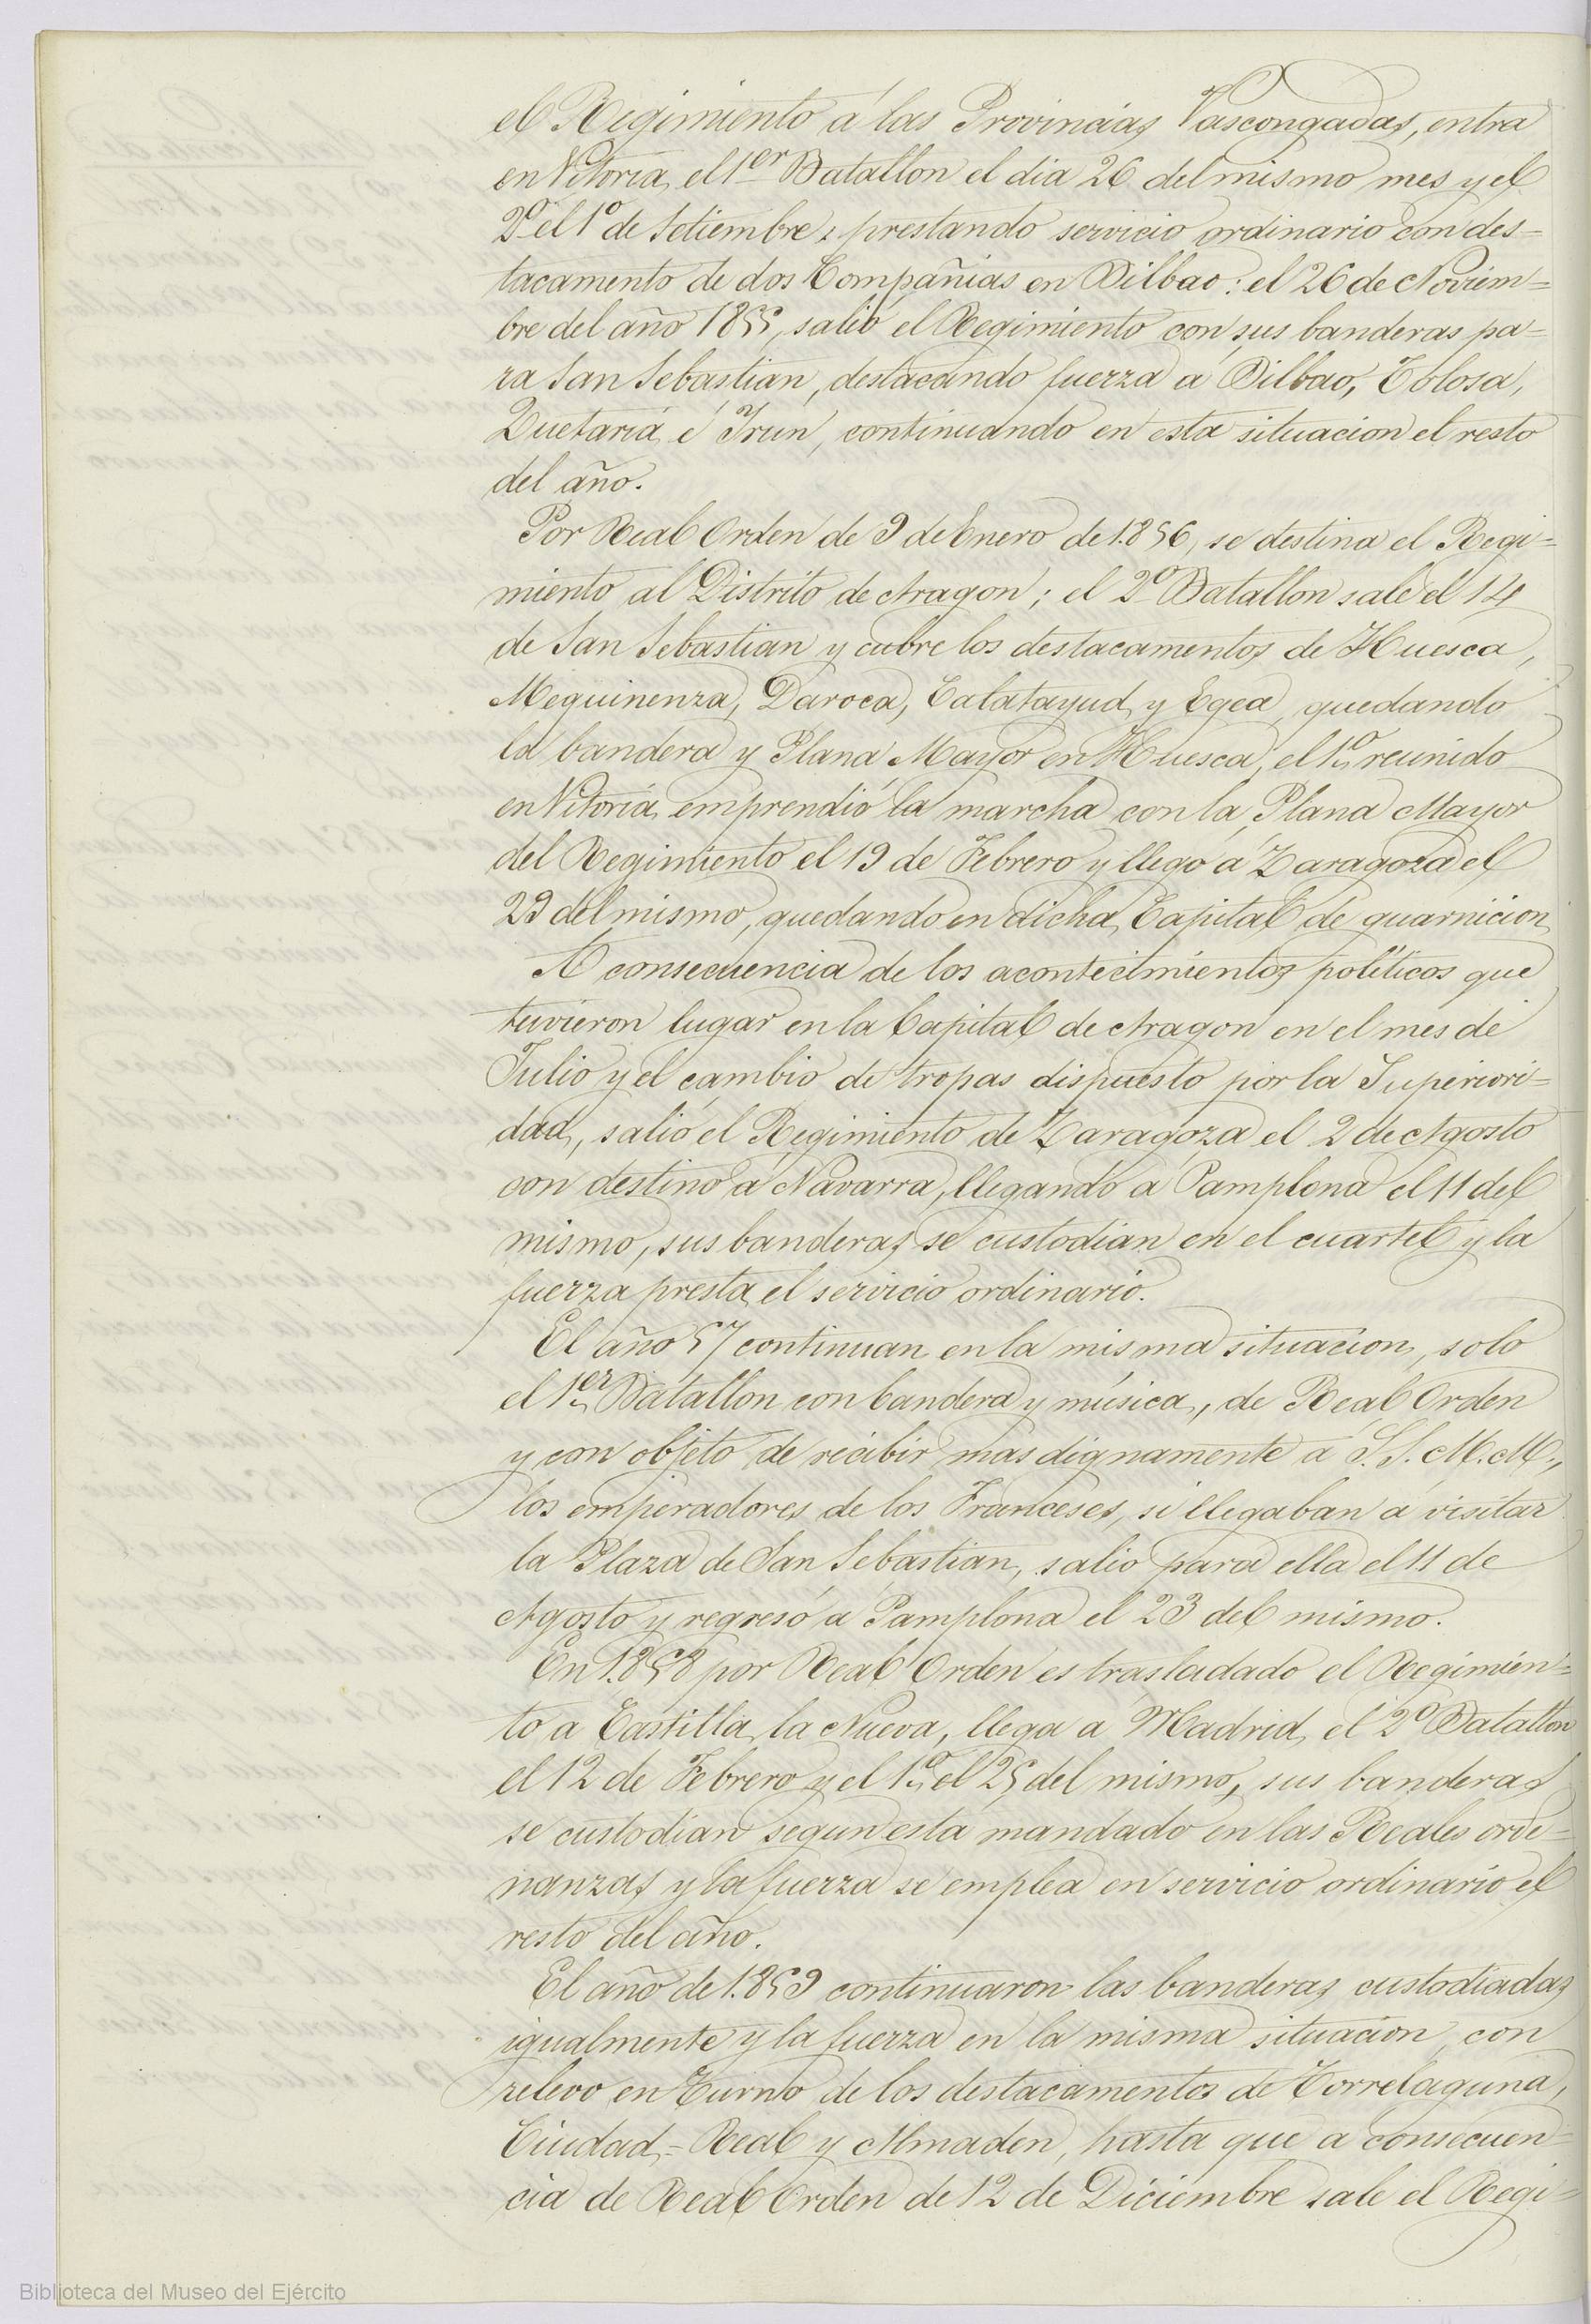 el Regimiento á las Provincias Vascongadas, entra
en Vitoria, el 1er Batallon el dia 26 del mismo mes y el
2º el 1º de Setiembre; prestando servicio ordinario con des=
tacamento de dos Compañias en Bilbao: el 26 de Noviem=
bre del año 1855, salió el Regimiento con sus banderas pa=
ra San Sebastian, destacando fuerza á Bilbao, Tolosa,
Zuetaria é Irun, continuando en esta situacion el resto
del año.
Por Real Orden de 9 de Enero de 1.856, se destina el Regi=
miento al Distrito de Aragon; el 2º Batallon sale el 14
de San Sebastian y cubre los destacamentos de Huesca,
Mequinenza, Daroca, Calatayud, y Egea, quedando
la bandera y Plana Mayor en Huesca, el 1º reunido
en Vitoria, emprendió la marcha con la Plana Mayor
del Regimiento el 19 de Febrero y llegó á Zaragoza el
29 del mismo, quedando en dicha Capital de guarnicion
A consecuencia de los acontecimientos políticos que
tuvieron lugar en la Capital de Aragon en el mes de
Julio y el cambio de tropas dispuesto por la Superiori=
dad, salió el Regimiento de Zaragoza el 2 de Agosto
con destino á Navarra, llegando á Pamplona el 11 del
mismo, sus banderas se custodian en el cuartel y la
fuerza presta el servicio ordinario.
El año 57 continuan en la misma situacion, solo
el 1er Batallon con bandera y música, de Real Orden
y con objeto de recibir mas dignamente á S.S.M.M.,
los emperadores de los Franceses, si llegaban á visitar
la Plaza de San Sebastian, salió para ella el 11 de
Agosto y regresó á Pamplona el 23 del mismo.
En 1.858 por Real Orden es trasladado el Regimien=
to á Castilla la Nueva, llega á Madrid, el 2º Batallon
el 12 de Febrero y el 1º el 25 del mismo, sus banderas
se custodian segun está mandado en las Reales orde=
nanzas y la fuerza se emplea en servicio ordinario el
resto del año.
El año de 1.859 continuaron las banderas custodiadas
igualmente y la fuerza en la misma situacion, con
relevo en turno de los destacamentos de Torrelaguna,
Ciudad=Real y Almaden, hasta que á consecuen=
cia de Real Orden de 12 de Diciembre sale el Regi=
Biblioteca del Museo del Ejército